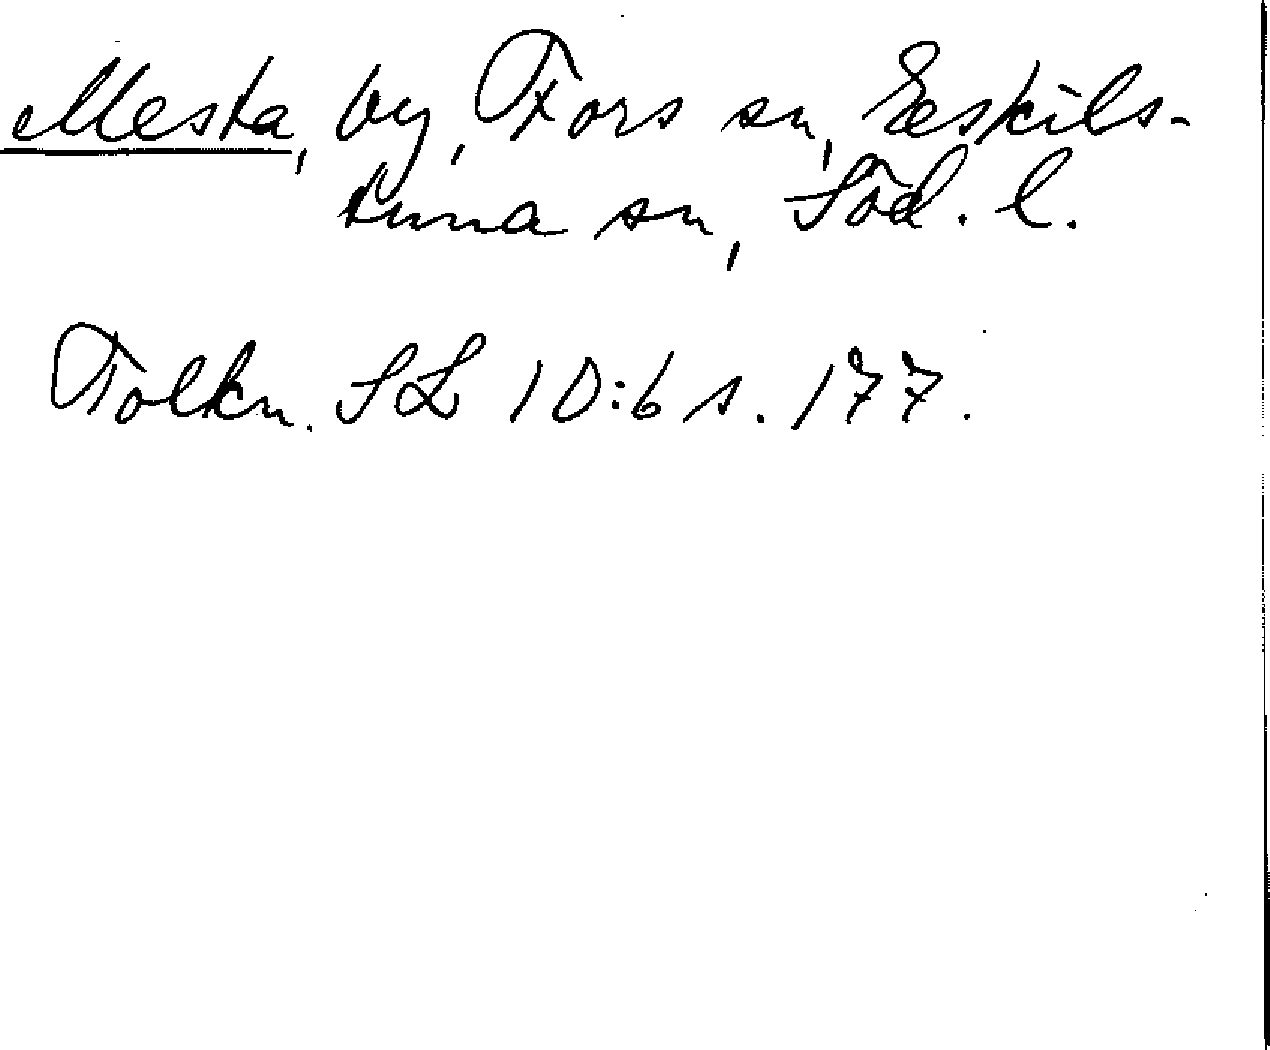 Mesta, by, Fors sn, Eskils-
tuna sn, Söd. l.
Tolkn. SL 10:6 s. 177.